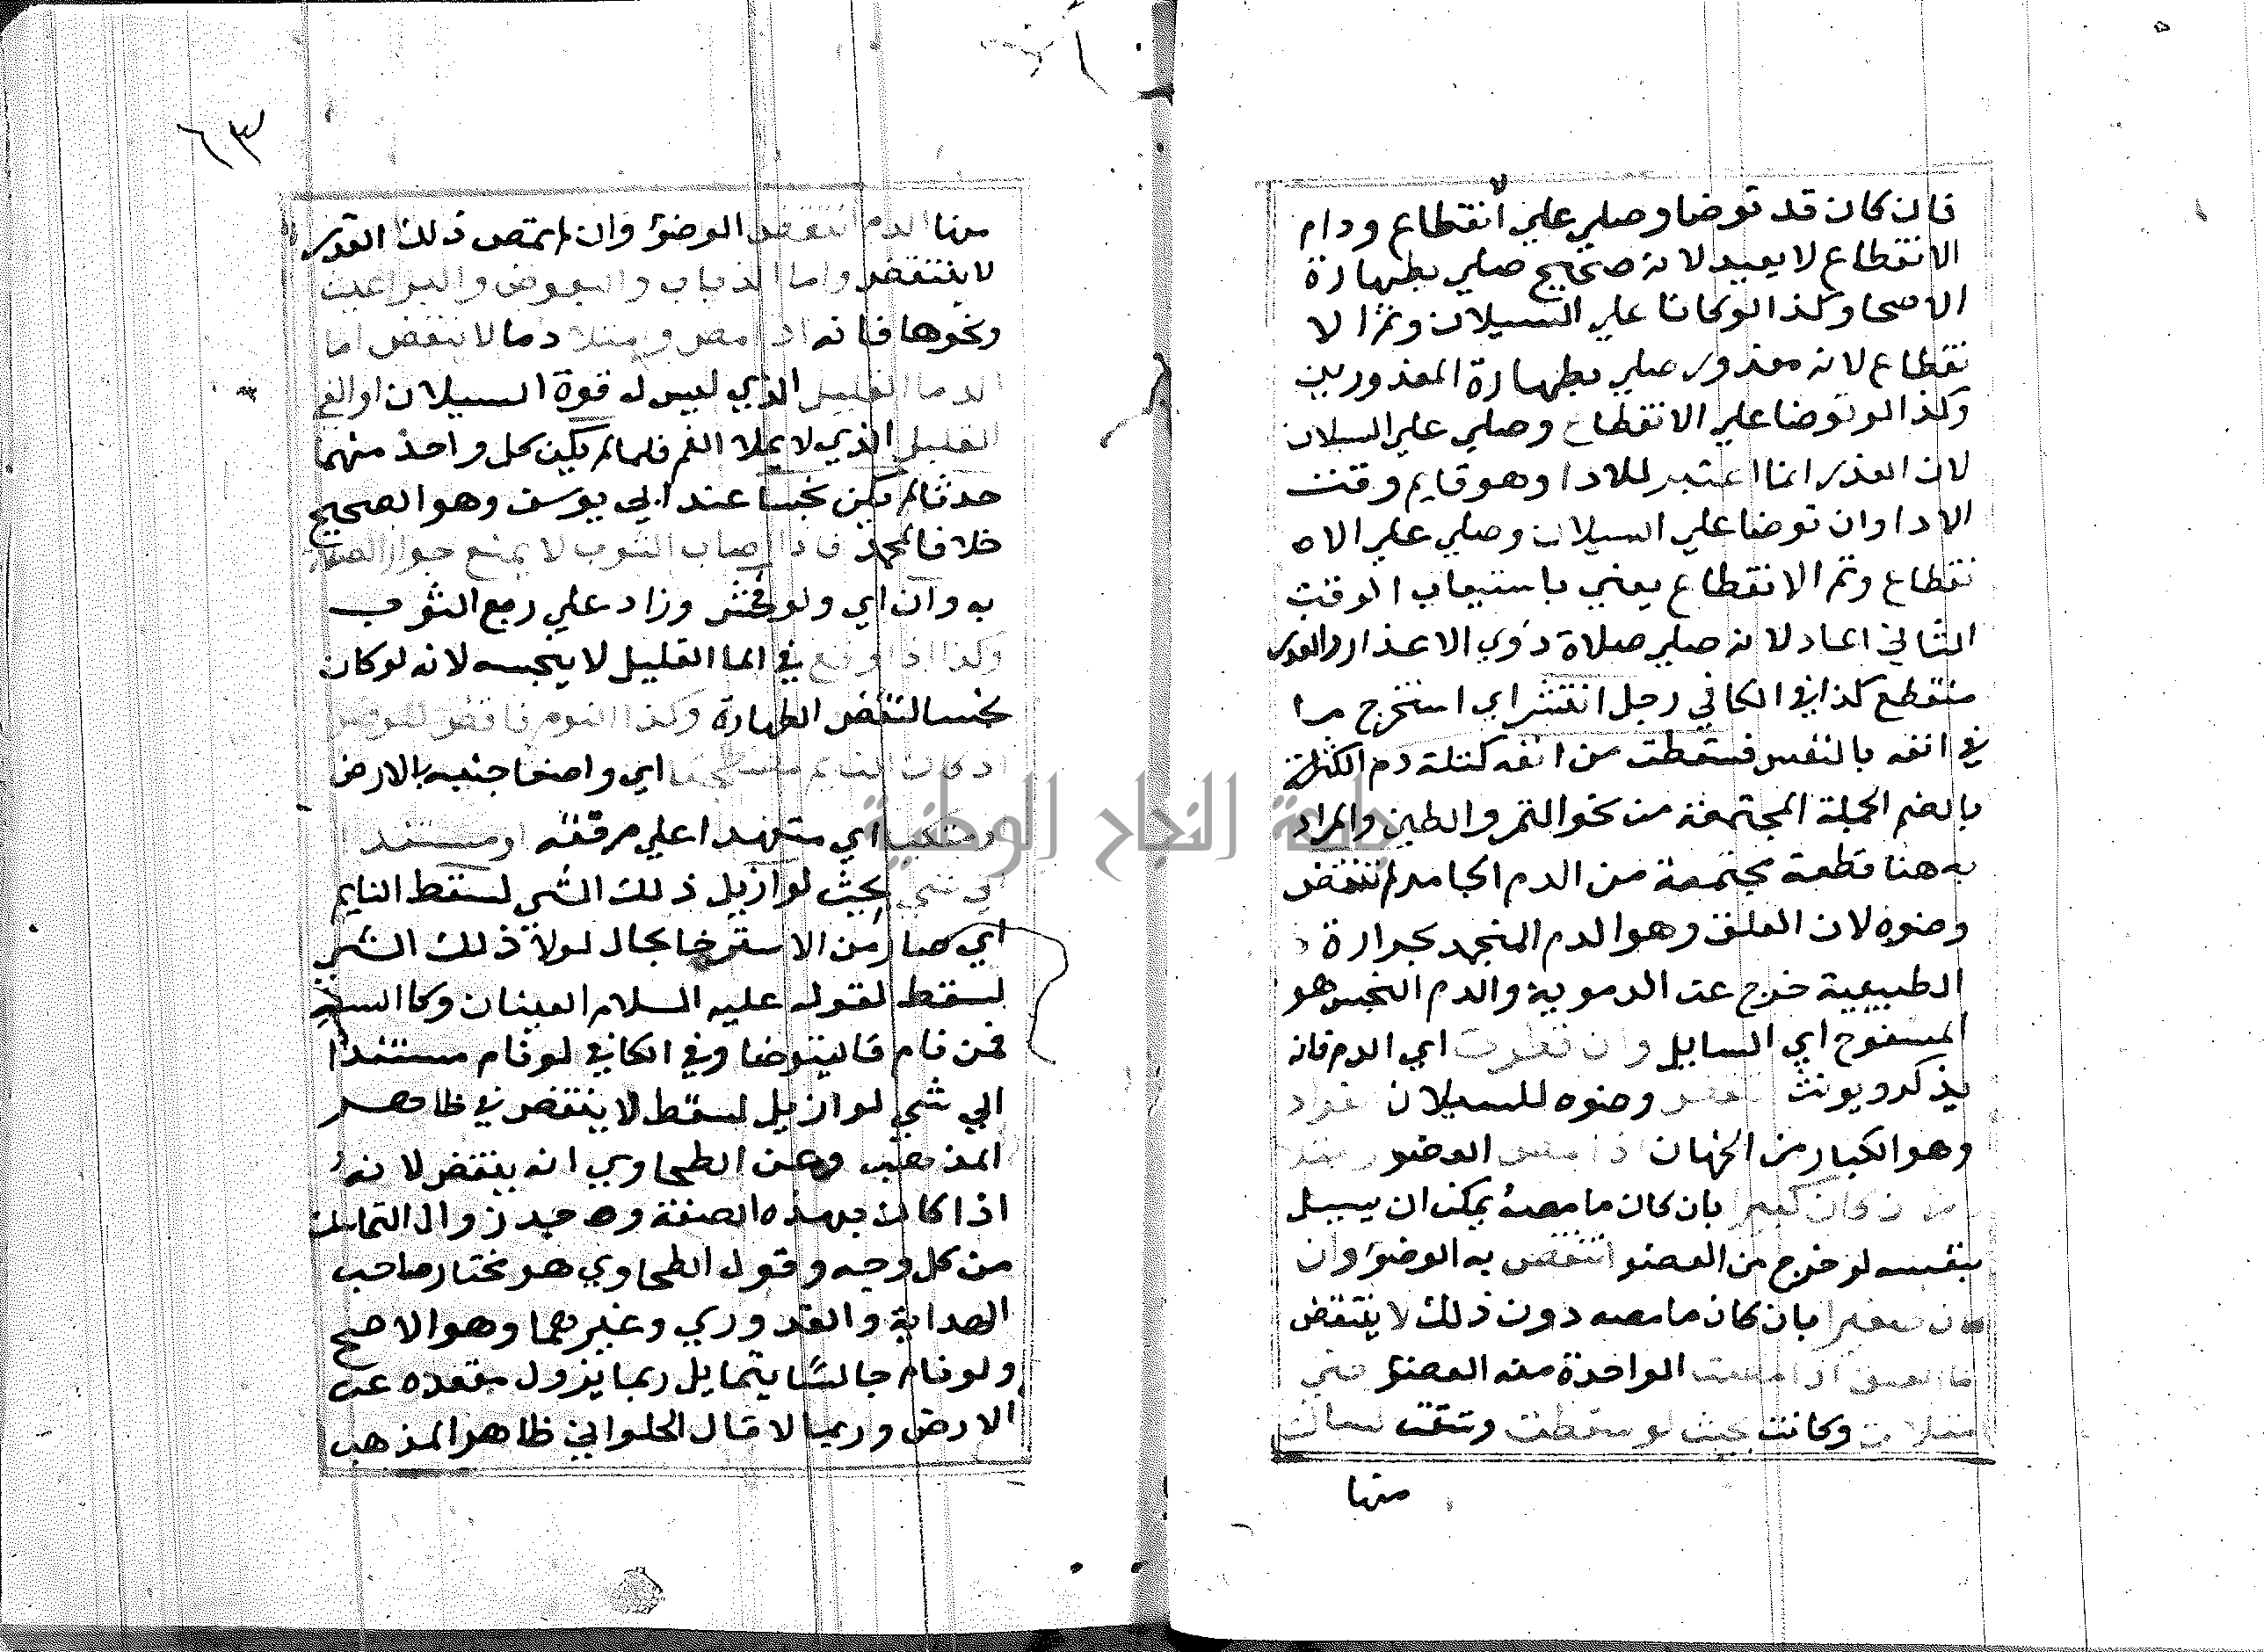 فان كان قد توضا وصلي علي انقطاع ودام
الانقطاع لا يعيد لانه صحيح صلي بطهارة
الاصحا وكذا لو كانا علي السيلان وتم الا
نقطاع لانه معذور صلي بطهارة المعذورين
وكذا لو توضا علي الانقطاع وصلي علي السيلان
لان العذر انما اعتبر للادا وهو قايم وقت
الادا وان توضا علي السيلان وصلي علي الا
نقطاع وتم الانقطاع يعني باستيعاب الوقت
الثاني اعاد لانه صلي صلاة ذوي الاعذار والعذر
منقطع كذا في الكافي رجل انتثر اي استخرج ما
في انفه بالنفس فسقطت من انفه كتلة دم الكتلة
بالضم الجملة المجتمعة من نحو التمر والطين والمراد
به هنا قطعة مجتمعة من الدم الجامد لم تنتقض
وضوه لان العلق وهو الدم المنجمد بحرارة
الطبيعية خرج عن الدموية والدم النجس هو
المسفوح اي السايل وان قطرت اي الدم فانه
يذكر ويونث وضوه للسيلان قراد
وهو الكبار من الحنان اذا مص العضو
ان كان كبيرا بان كان ما مصه يمكن ان يسيل
بنفسه لو خرج من العضو انتقض به الوضو وان
كان صغيرا بان كان ما مصه دون ذلك لا ينتقض
اما العلق اذا مصت الواحدة منه العضو حتي
امتلات وكانت بحيث لو سقطت وشقت لسال
منها
٦٣
منها الدم انتقض الوضو وان لم تمتص ذلك القدر
لا ينتقض واما الذباب والبعوض والبراغيث
ونحوها فانه اذا مص وامتلا دما لا ينقض اما
الدما القليل الذي ليس له قوة السيلان او القي
القليل الذي لا يملا الفم فلما لم يكن كل واحد منهما
حدثا لم يكن نجسا عند ابي يوسف وهو الصحيح
خلافا لمحمد فاذا اصاب الثوب لا يمنع جواز الصلاة
به وان اي ولو فحش وزاد علي ربع الثوب
وكذا اذا وقع في الما القليل لا ينجسه لانه لو كان
نجسا لنقض الطهارة وكذا النوم ناقض للوضو
اذ كان النايم مضطجعا اي واضعا جنبيه بالارض
او متكيا اي متعهدا علي مرفقه او مستندا
الي شي بحيث لو ازيل ذلك الشي لسقط النايم
اي صار من الاسترخا بحال لولا ذلك الشي
لسقط لقوله عليه السلام العينان وكا السه
فمن نام فاليتوضا وفي الكافي لو نام مستندا
الي شي لو ازيل لسقط لا ينتقض في ظاهر
المذهب وعن الطحاوي انه ينتقض لانه
اذا كان بهذه الصفة وجد زوال التماسك
من كل وجه وقول الطحاوي هو مختار صاحب
الهداية والقدوري وغيرهما وهو الاصح
ولو نام جالسا يتمايل ربما يزول مقعده عن
الارض وربما لا قال الحلواني ظاهر المذهب
جامعة النجاح الوطنية